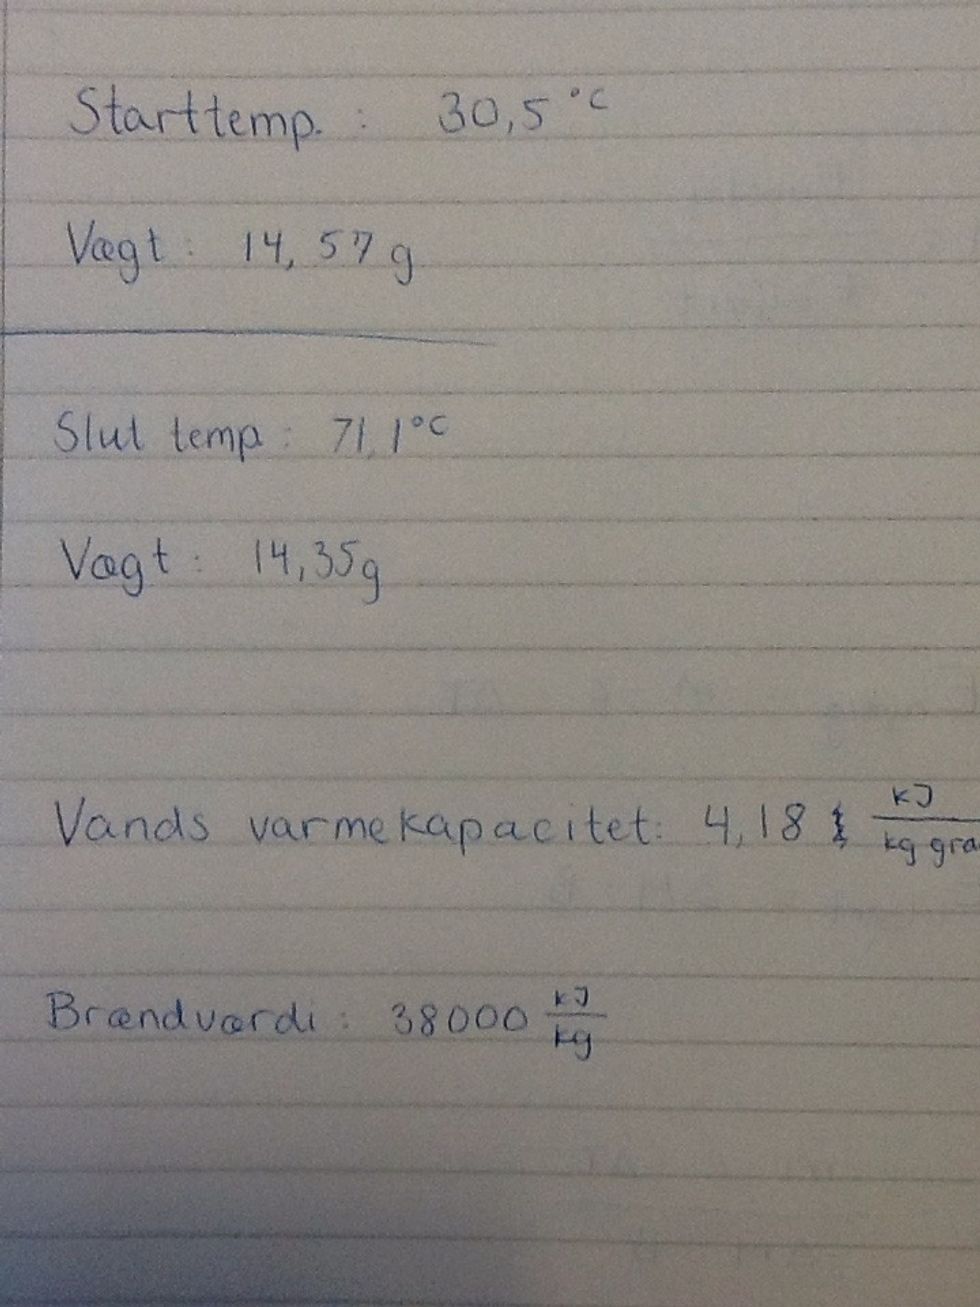 Starttemp. : 30,5 °C
Vægt : 14,57 g
Slut temp : 71,1 °C
Vægt : 14,35g
Vands varmekapacitet: 4,18 kJ
kg gra
Brændværdi : 38000 kJ
kg